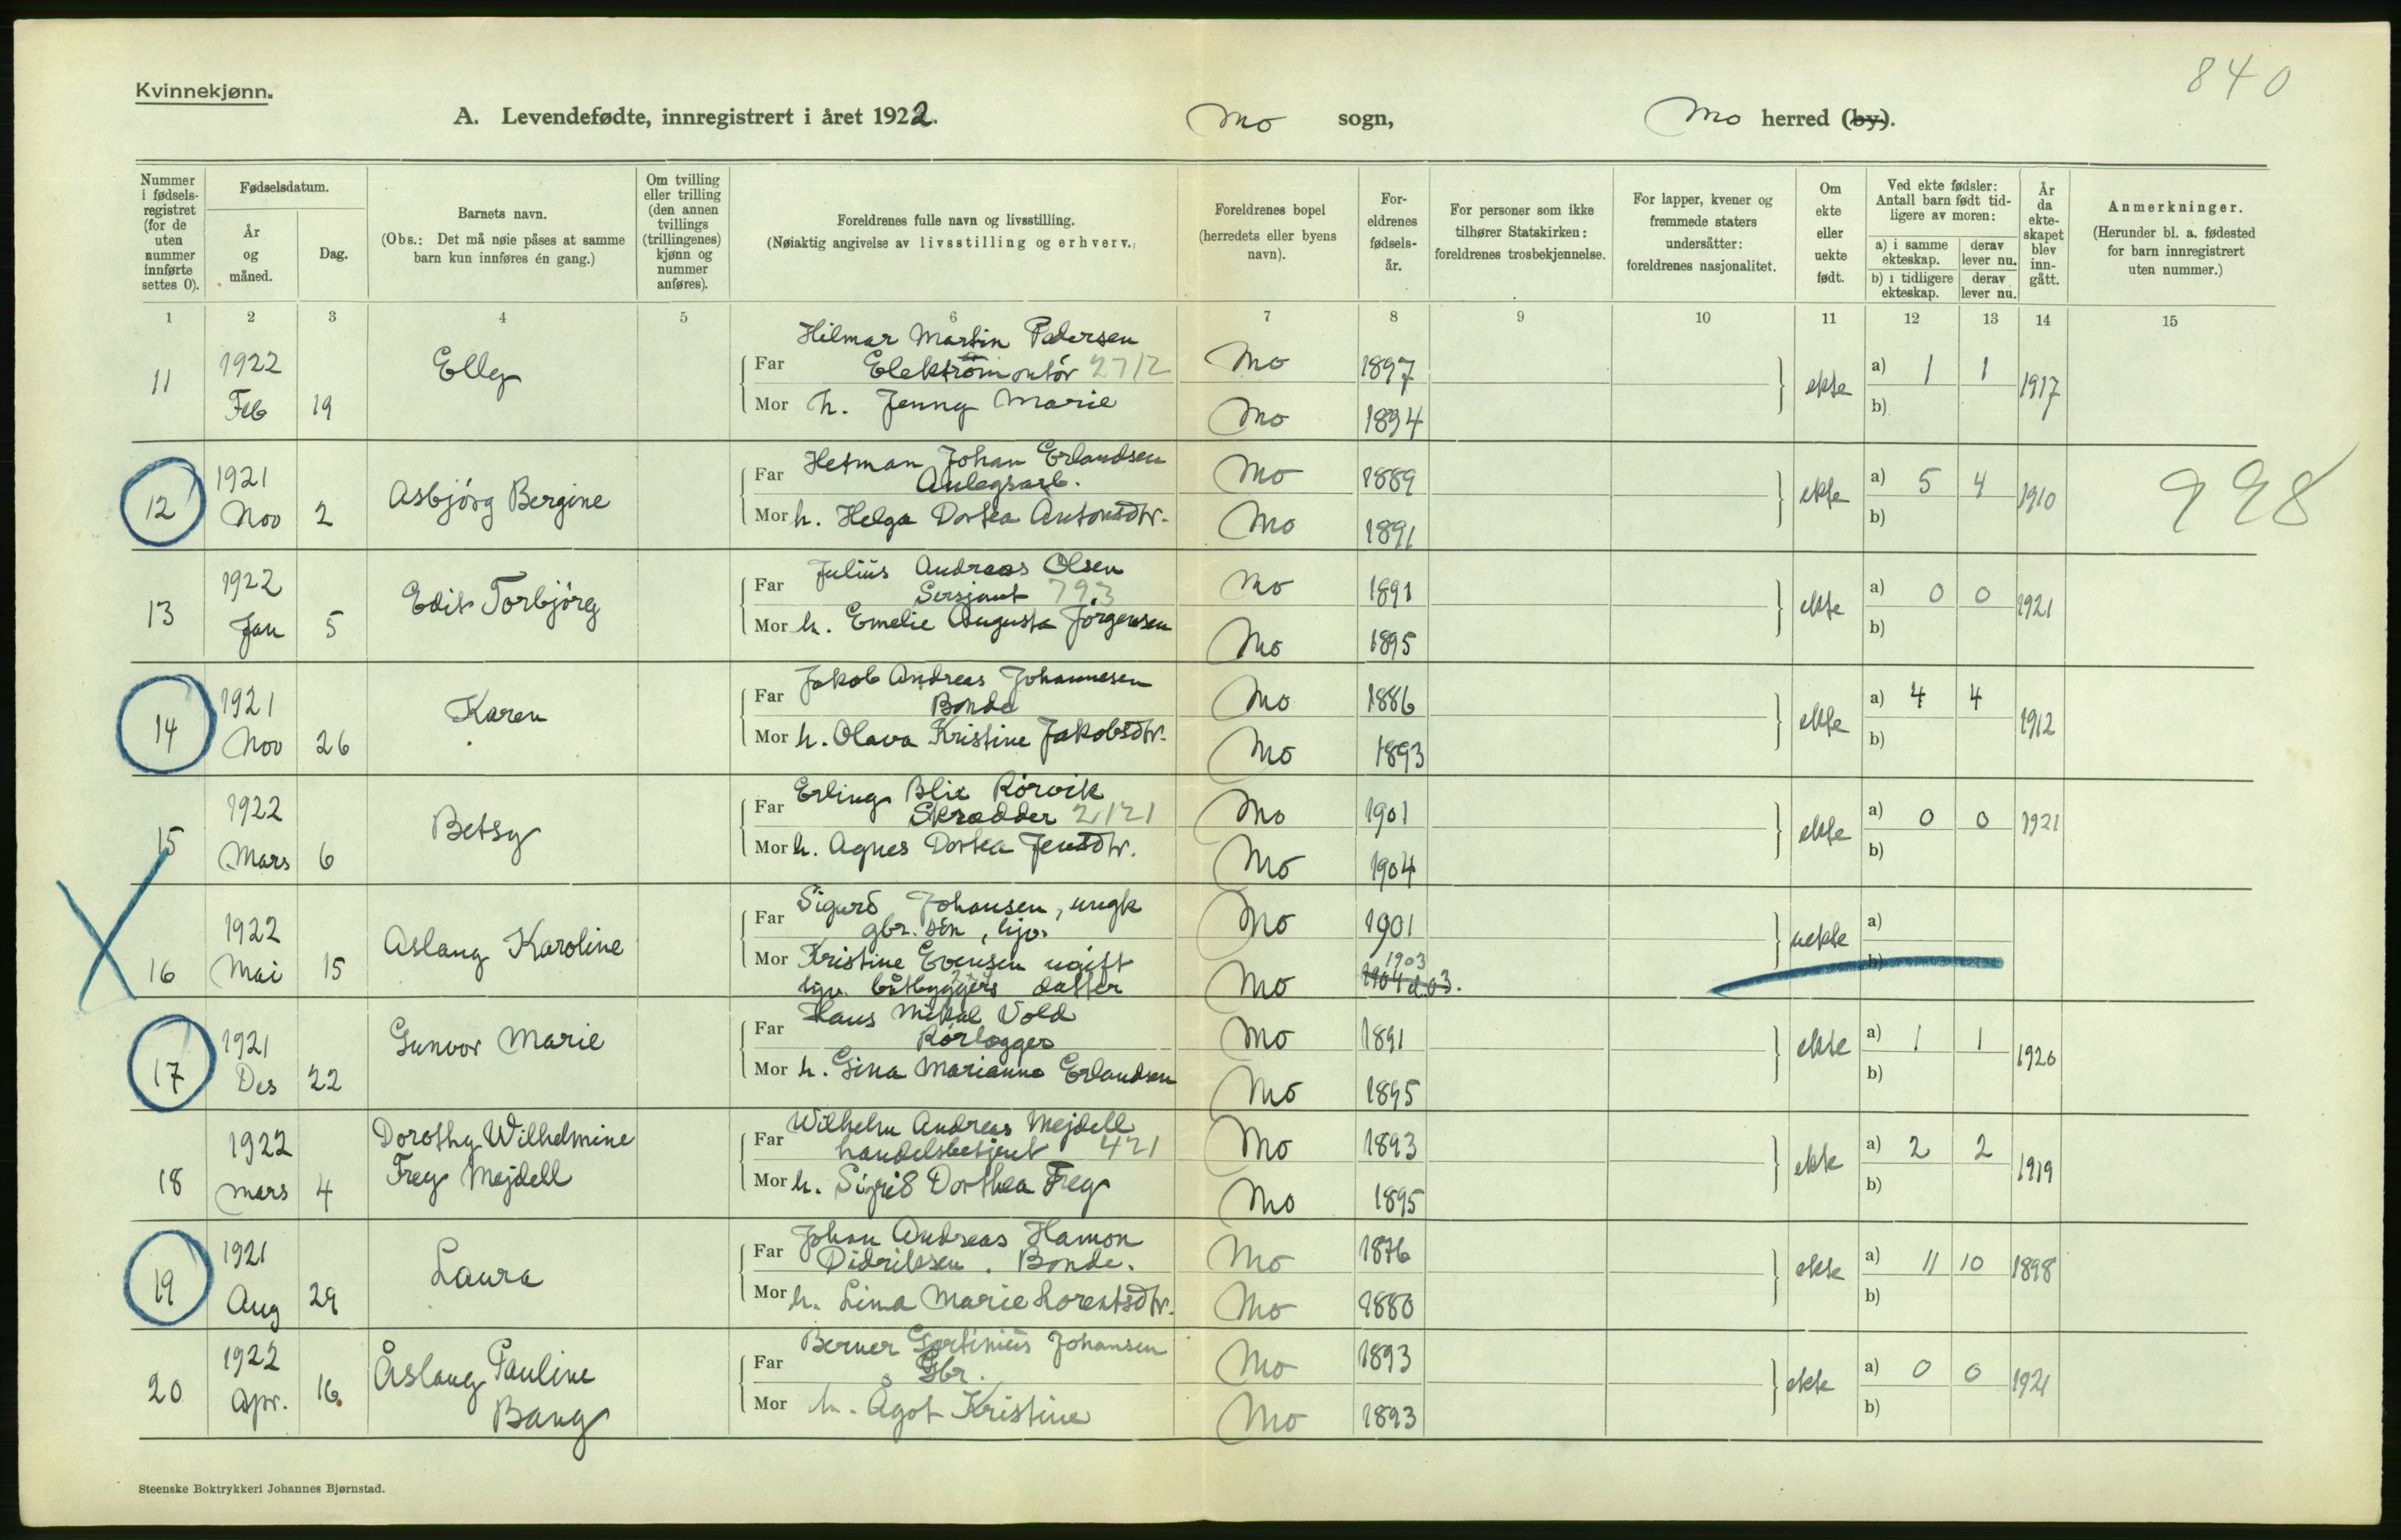 840
Kvinnekjønn.
A. Levendefødte, innregistrert i året 1922. Mo sogn, Mo herred (by).
Nummer i fødsels-registret (for de uten nummer innførte settes 0).
Fødselsdatum.
År og måned.
Dag.
Barnets navn.
(Obs.: Det må nøie påses at samme barn kun innføres én gang.)
Om tvilling eller trilling (den annen tvillings (trillingenes) kjønn og nummer anføres).
Foreldrenes fulle navn og livsstilling.
(Nøiaktig angivelse av livsstilling og erhverv.)
Foreldrenes bopel (herredets eller byens navn).
For-eldrenes fødsels-år.
For personer som ikke tilhører Statskirken: foreldrenes trosbekjennelse.
For lapper, kvener og fremmede staters undersåtter: foreldrenes nasjonalitet.
Om ekte eller uekte født.
Ved ekte fødsler: Antall barn født tid-ligere av moren:
a) i samme ekteskap.
derav lever nu.
b) i tidligere ekteskap.
derav lever nu.
År da ekte-skapet blev inn-gått.
Anmerkninger.
(Herunder bl. a. fødested for barn innregistrert uten nummer.)
1 2 3 4 5 6 7 8 9 10 11 12 13 14 15
Hilmar Martin Pedersen
11 1922 Elly Far Elektromontör 2712 Mo 1897 ekte a) 1 1 1917
Feb 19 Mor h. Jenny Marie Mo 1894 b)
Herman Johan Erlandsen
12 1921 Asbjörg Bergine Far Anlegsarb. Mo 1889 ekte a) 5 4 1910 998
Nov 2 Mor h. Helga Dortea Antonsdtr. Mo 1891 b)
Julius Andreas Olsen
13 1922 Edit Torbjörg Far Sersjant 793 Mo 1891 ekte a) 0 0 1921
Jan 5 Mor h. Emelie Augusta Jörgensen Mo 1895 b)
Jakob Andreas Johannesen
14 1921 Karen Far Bonde Mo 1886 ekte a) 4 4 1912
Nov 26 Mor h. Olava Kristine Jakobsdtr. Mo 1893 b)
Erling Blix Rörvik
15 1922 Betsy Far Skredder 2121 Mo 1901 ekte a) 0 0 1921
Mars 6 Mor h. Agnes Dortea Jensdtr. Mo 1904 b)
Sigurd Johansen, ungk
16 1922 Aslaug Karoline Far gbr. sön, Mo 1901 uekte a)
Mai 15 Mor Kristine Evensen ugift 1903 b)
båtbyggers datter Mo 1904
Hans Mikal Vold
17 1921 Gunvor Marie Far Rörlegger Mo 1891 ekte a) 1 1 1920
Des 22 Mor h. Gina Marianne Erlandsen Mo 1895 b)
Wilhelm Andreas Mejdell
18 1922 Dorothy Wilhelmine Far handelsbetjent 421 Mo 1893 ekte a) 2 2 1919
mars 4 Frey Mejdell Mor h. Sigrid Dorthea Frey Mo 1895 b)
Johan Andreas Hamon
19 1921 Laura Far Didriksen. Bonde. Mo 1876 ekte a) 11 10 1898
Aug 29 Mor h. Lina Marie Lorentsdtr. Mo 1880 b)
Berner Johansen
20 1922 Åslaug Pauline Far Gbr. Mo 1893 ekte a) 0 0 1921
Apr. 16. Bang Mor h. Ågot Kristine Mo 1893 b)
Steenske Boktrykkeri Johannes Bjørnstad.